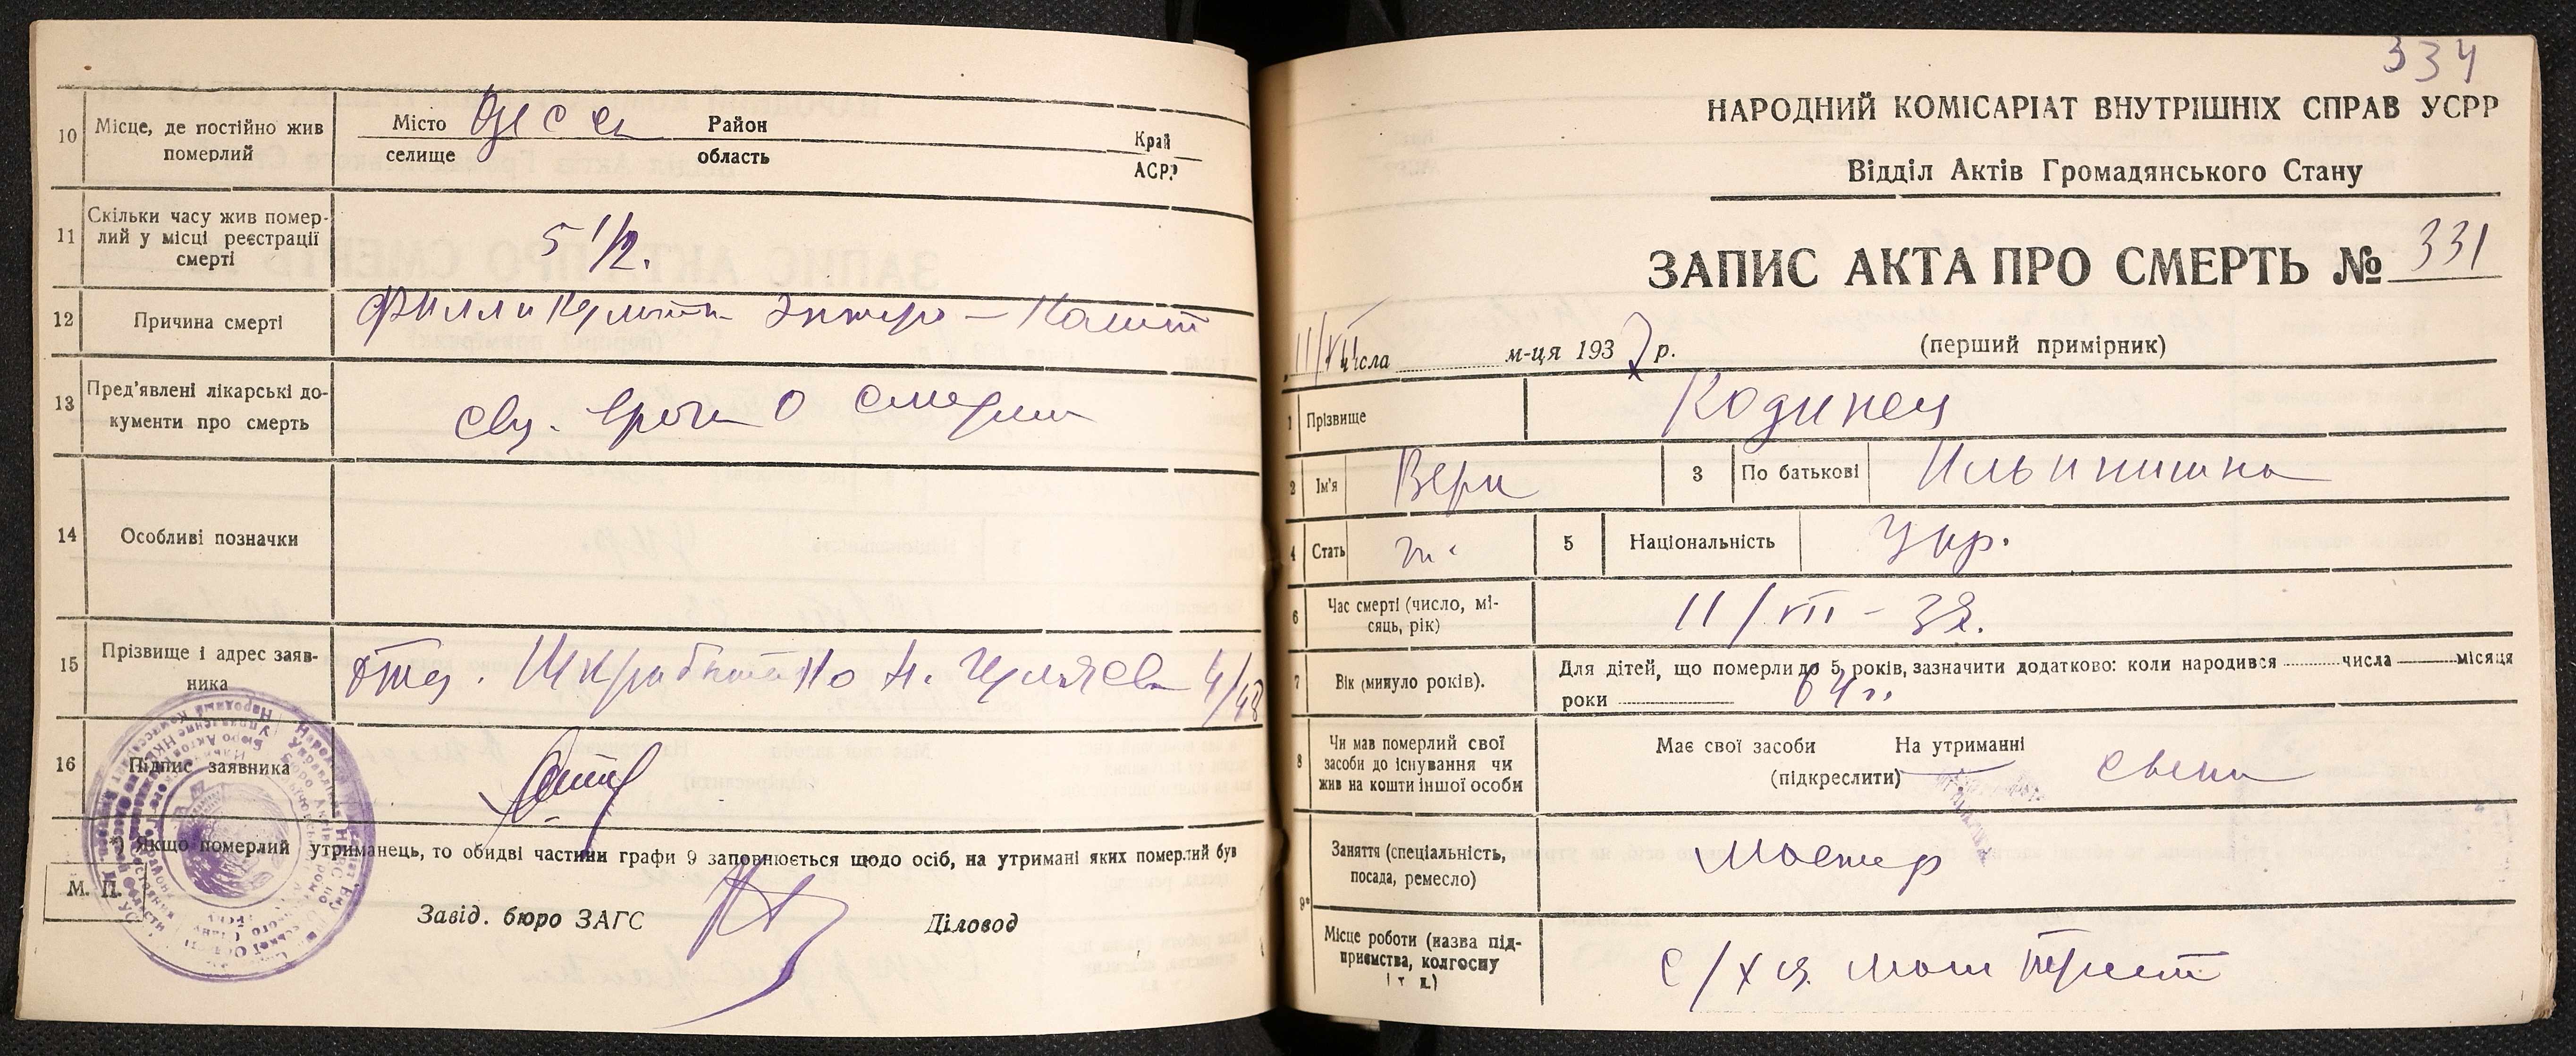 10
Місце, де постійно жив
померлий
Місто Одесса Район Край
селище область АСРР
11
Скільки часу жив помер-
лий у місці реєстрації
смерті
5 1/2.
12
Причина смерті
Колит
13
Пред'явлені лікарські до-
кументи про смерть
врача о смерти
14
Особливі позначки
15
Прізвище і адрес заяв-
ника
отец. 4/48
16
Підпис заявника
*) Якщо померлий утриманець, то обидві частини графи 9 заповнюється щодо осіб, на утримані яких померлий був
М. П.
Завід. бюро ЗАГС Діловод
334
НАРОДНИЙ КОМІСАРІАТ ВНУТРІШНІХ СПРАВ УСРР
Відділ Актів Громадянського Стану
ЗАПИС АКТА ПРО СМЕРТЬ № 331
11/VII числа м-ця 1937 р. (перший примірник)
1 Прізвище Кодинец
2 Ім'я Вера 3 По батькові Ильинишна
4 Стать ж. 5 Національність Укр.
6
Час смерті (число, мі-
сяць, рік)
11/VII-37.
7
Вік (минуло років).
Для дітей, що померли до 5 років, зазначити додатково: коли народився числа місяця
роки 64 г.
8
Чи мав померлий свої
засоби до існування чи
жив на кошти іншої особи
Має свої засоби На утриманні
(підкреслити)
сына
9*
Заняття (спеціальність,
посада, ремесло)
Мастер
Місце роботи (назва під-
приємства, колгосну
і т. и.)
с/хоз. маш трест